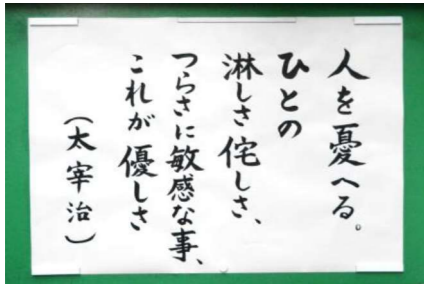 人を憂へる。
ひとの
淋しさ侘しさ、
つらさに敏感な事、
これが優しさ
（太宰治）